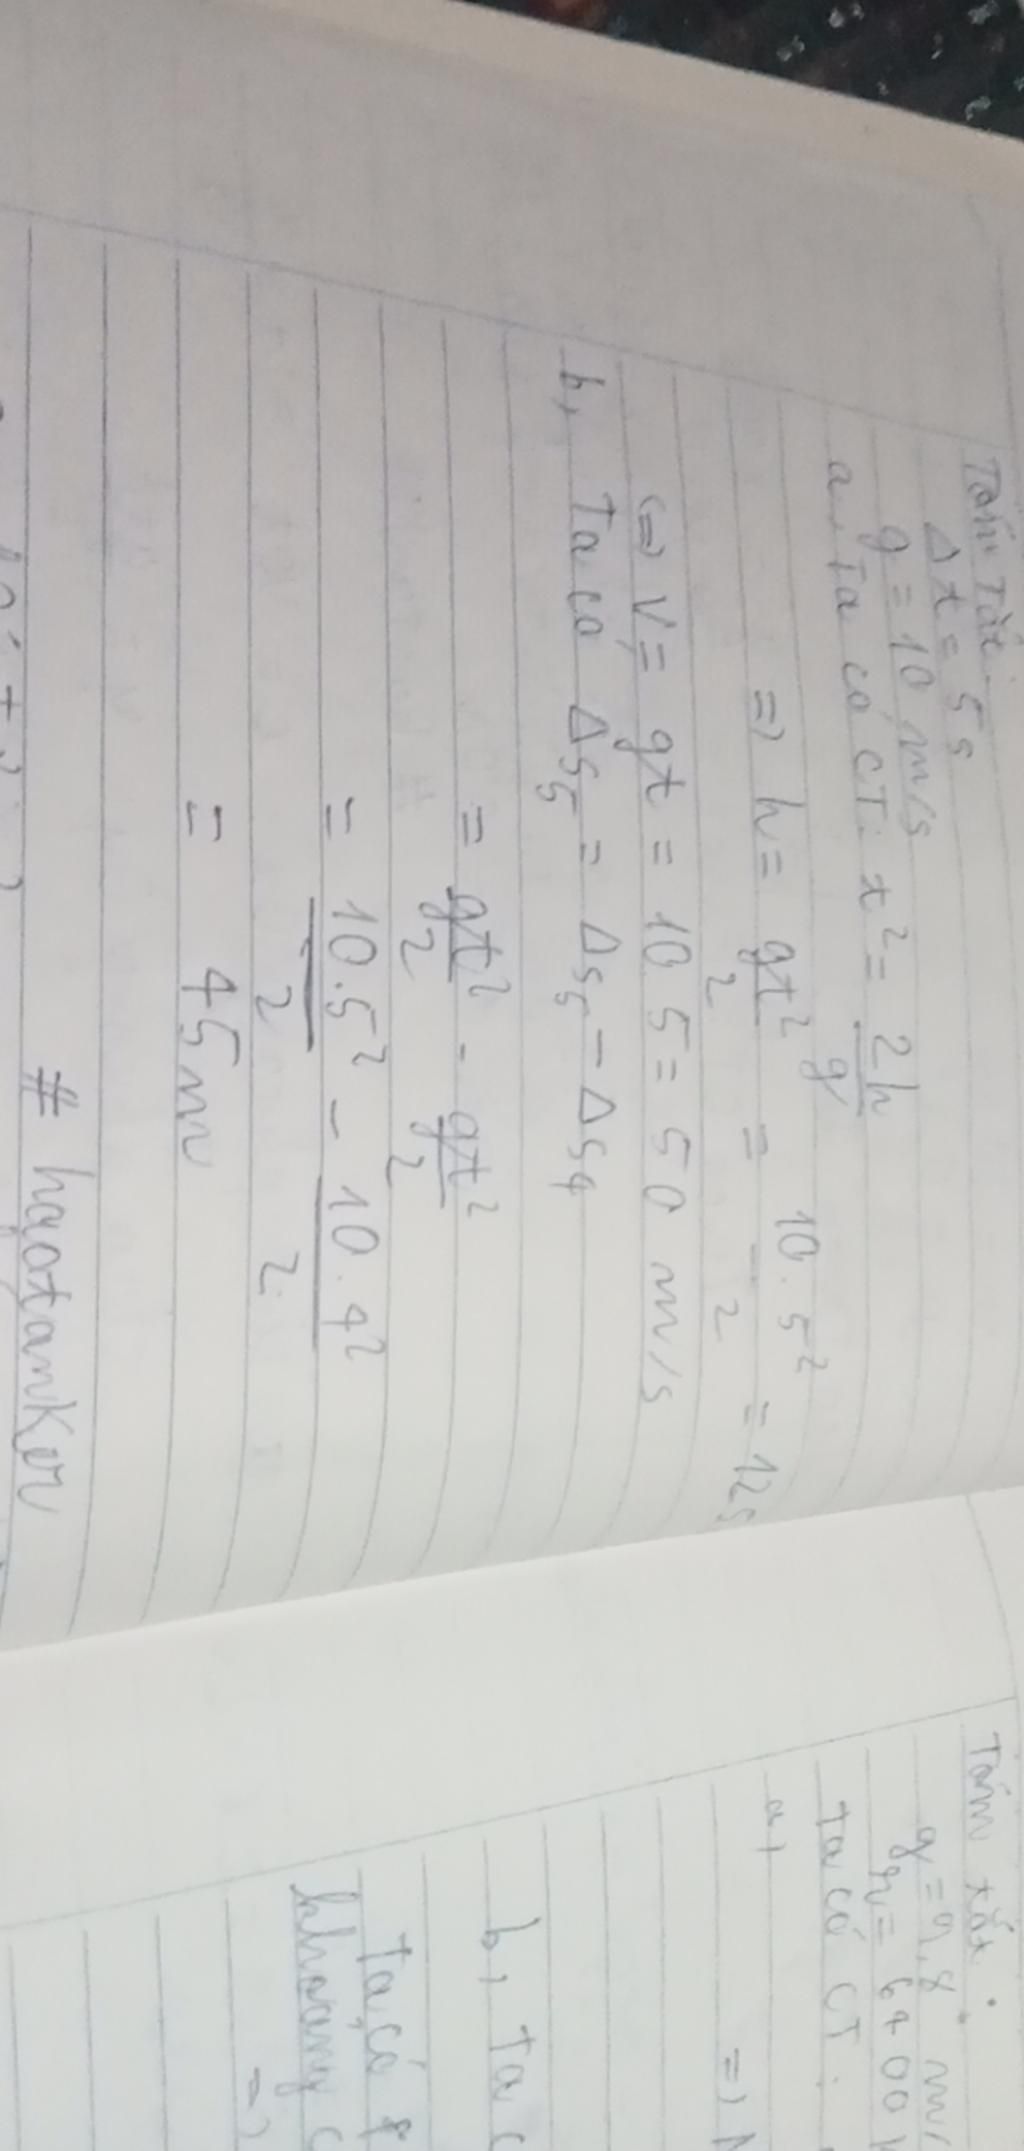 Tóm tắt.
Δt = 5s
g = 10 m/s
a, Ta có CT: t² = 2h/g
=> h = gt²/2 = 10.5²/2 = 125
<=> V = gt = 10 5 = 50 m/s
b, Ta có Δs₅ = Δs₅ - Δs₄
= gt²/2 - gt²/2
= 10.5²/2 - 10.4²/2
= 45m
# haotanker
Tóm tắt.
g = 9,8 m/
= 6400
Ta có CT:
a,
=>
b, Ta c
Ta có
khoảng c
=>